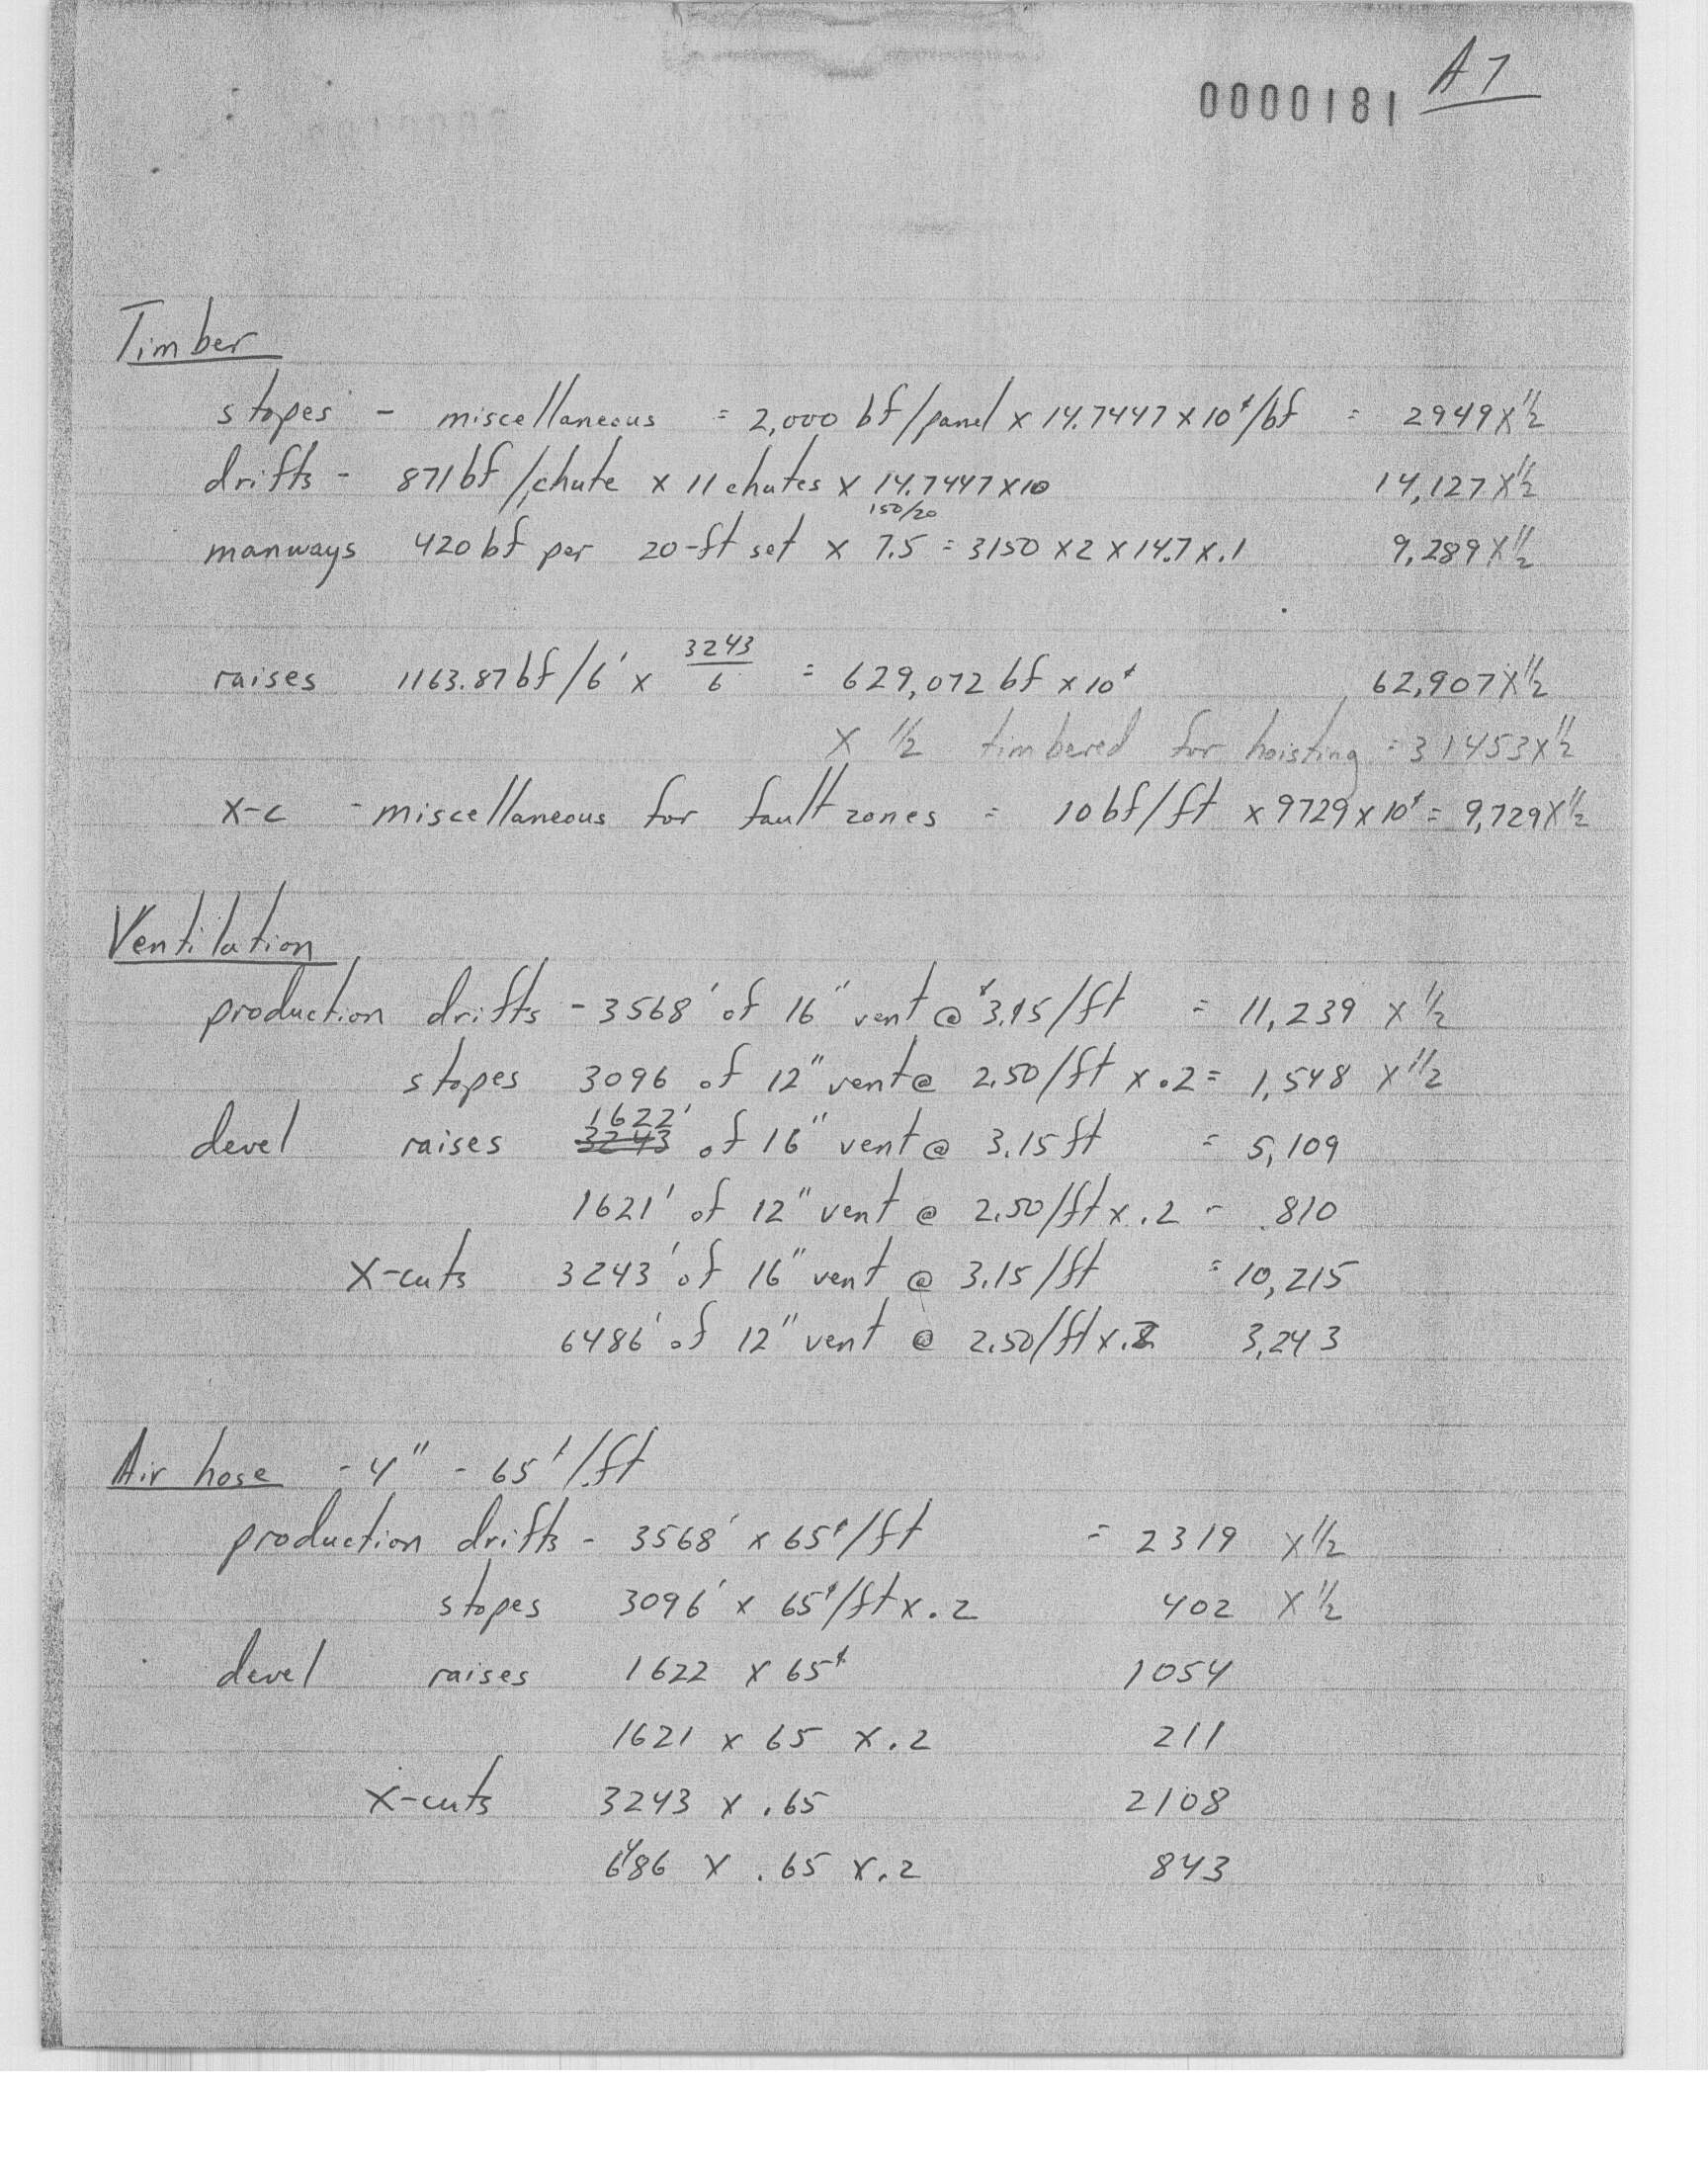 A7
0000181
Timber
stopes - miscellaneous = 2,000 bf/panel x 14.7447 x 10¢/bf = 2949 x 1/2
drifts - 871 bf/chute x 11 chutes x 14.7447 x 10 14,127 x 1/2
150/20
manways 420 bf per 20-ft set x 7.5 = 3150 x 2 x 14.7 x .1 9,289 x 1/2
raises 1163.87 bf/6' x 3243/6 = 629,072 bf x 10¢ 62,907 x 1/2
x 1/2 timbered for hoisting = 31453 x 1/2
x-c - miscellaneous for fault zones = 10 bf/ft x 9729 x 10¢ = 9,729 x 1/2
Ventilation
production drifts - 3568' of 16" vent @ $3.15/ft = 11,239 x 1/2
stopes 3096 of 12" vent @ 2.50/ft x .2 = 1,548 x 1/2
1622'
devel raises 3243 of 16" vent @ 3.15 ft = 5,109
1621' of 12" vent @ 2.50/ft x .2 - 810
X-cuts 3243' of 16" vent @ 3.15/ft = 10,215
6486' of 12" vent @ 2.50/ft x .2 3,243
Air hose - 4" - 65¢/ft
production drifts - 3568' x 65¢/ft = 2319 x 1/2
stopes 3096' x 65¢/ft x .2 402 x 1/2
devel raises 1622 x 65¢ 1054
1621 x 65 x .2 211
X-cuts 3243 x .65 2108
6486 x .65 x .2 843